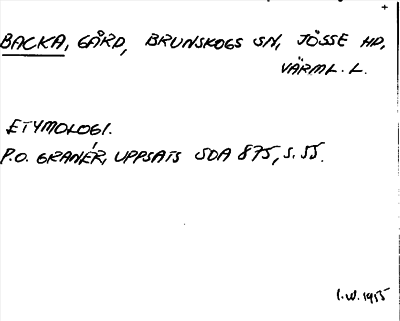 BACKA, GÅRD, BRUNSKOGS SN, JÖSSE HD,
VÄRML. L.
ETYMOLOGI.
P.O. GRANÉR, UPPSATS SOA 875, S. 55.
I.W. 1955